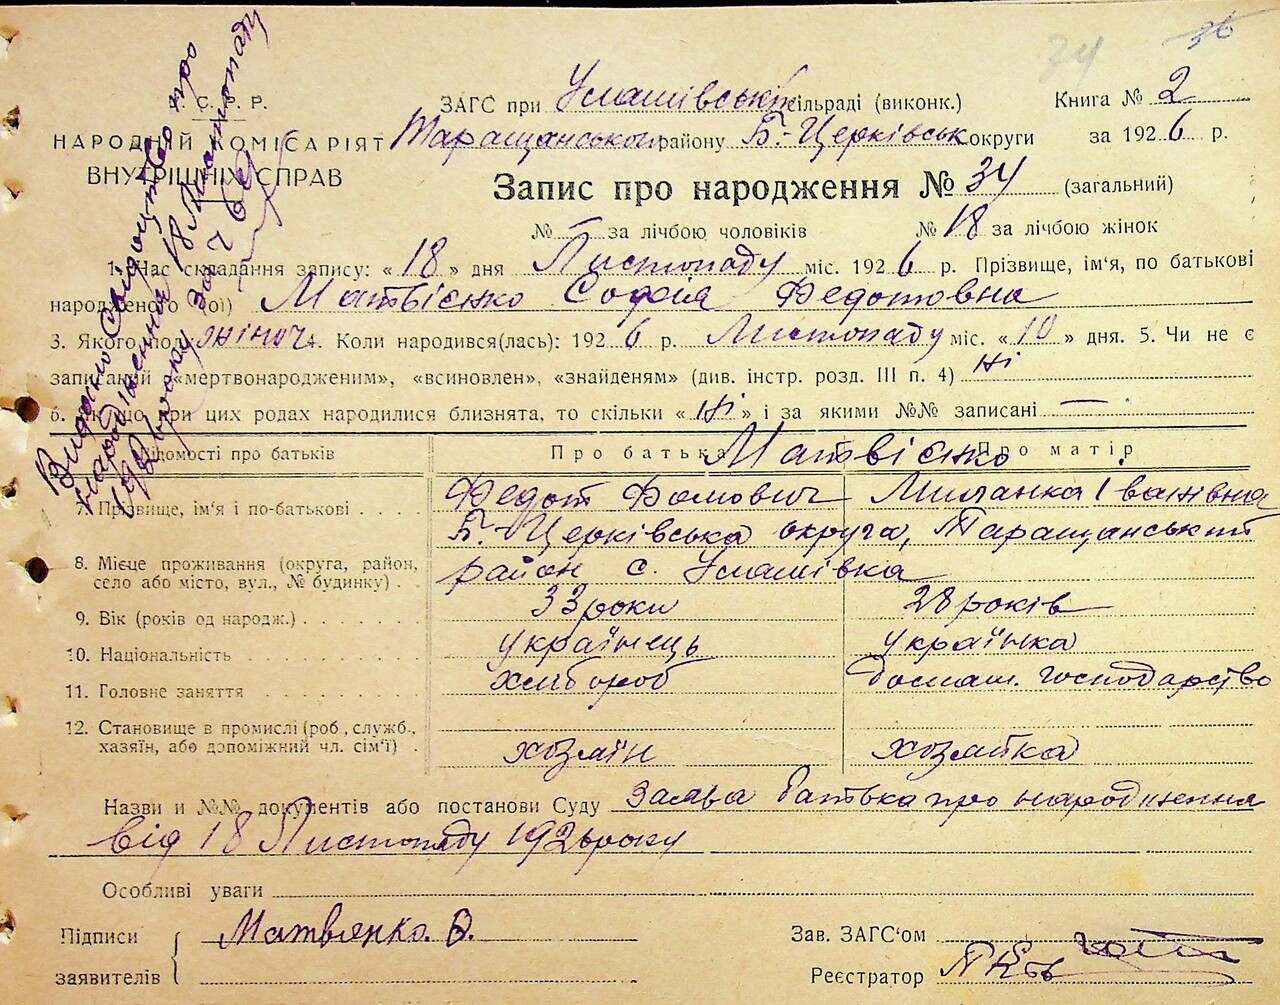 74 36
У. С. Р. Р.
НАРОДНІЙ КОМІСАРІЯТ
ВНУТРІШНІХ СПРАВ
Видано свідоцтво про
народження 18 Листопаду
1926 року за ч 69
ЗАГС при Улашівській сільраді (виконк.) Книга № 2
Таращанського району Б.-Церківськ округи за 1926 р.
Запис про народження № 34 (загальний)
№ — за лічбою чоловіків № 18 за лічбою жінок
1. Час складання запису: «18» дня Листопаду міс. 1926 р. Прізвище, ім'я, по батькові
народженого (ої) Матвієнко Софія Федотовна
3. Якого полу жіноч 4. Коли народився(лась): 1926 р. Листопаду міс. «10» дня. 5. Чи не є
записаний «мертвонародженим», «всиновлен», «знайденям» (див. інстр. розд. III п. 4) Ні
6. Якщо при цих родах народилися близнята, то скільки «Ні» і за якими №№ записані —
Відомості про батьків Про батька Про матір
Матвієнко
7. Прізвище, ім'я і по-батькові Федот Фомович Миланка Іванівна
8. Місце проживання (округа, район, село або місто, вул., № будинку) Б.-Церківська округа, Таращанський
район с. Улашівка
9. Вік (років од народж.) 33 роки 28 років
10. Національність українець українка
11. Головне заняття хлібороб домаш. господарство
12. Становище в промислі (роб., служб.,
хазяїн, або допоміжний чл. сім'ї) хозяїн хозяйка
Назви и №№ документів або постанови Суду Заява батька про народження
від 18 Листопаду 1926 року
Особливі уваги
Підписи
заявителів
Матвиенко. Ф.
Зав. ЗАГС'ом
Реєстратор